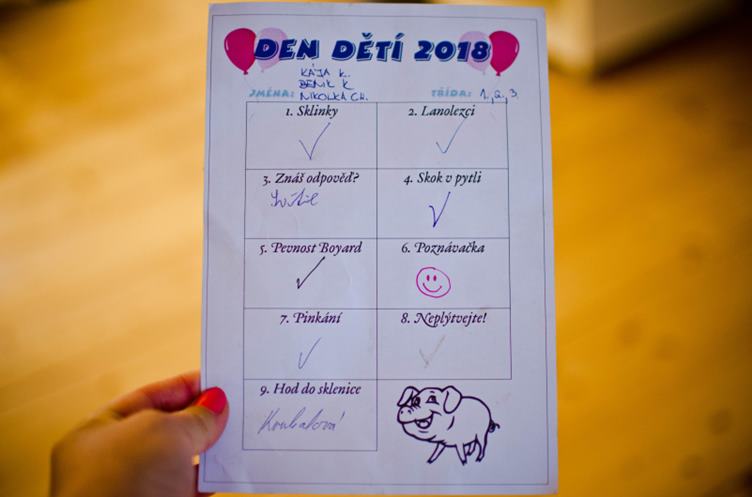 DEN DĚTÍ 2018
KÁJA K.
BENIK K
JMÉNA: NIKOLKA CH. TŘÍDA: 1., 2., 3.
1. Sklinky 2. Lanolezci
3. Znáš odpověď? 4. Skok v pytli
5. Pevnost Boyard 6. Poznávačka
7. Pinkání 8. Neplýtvejte!
9. Hod do sklenice